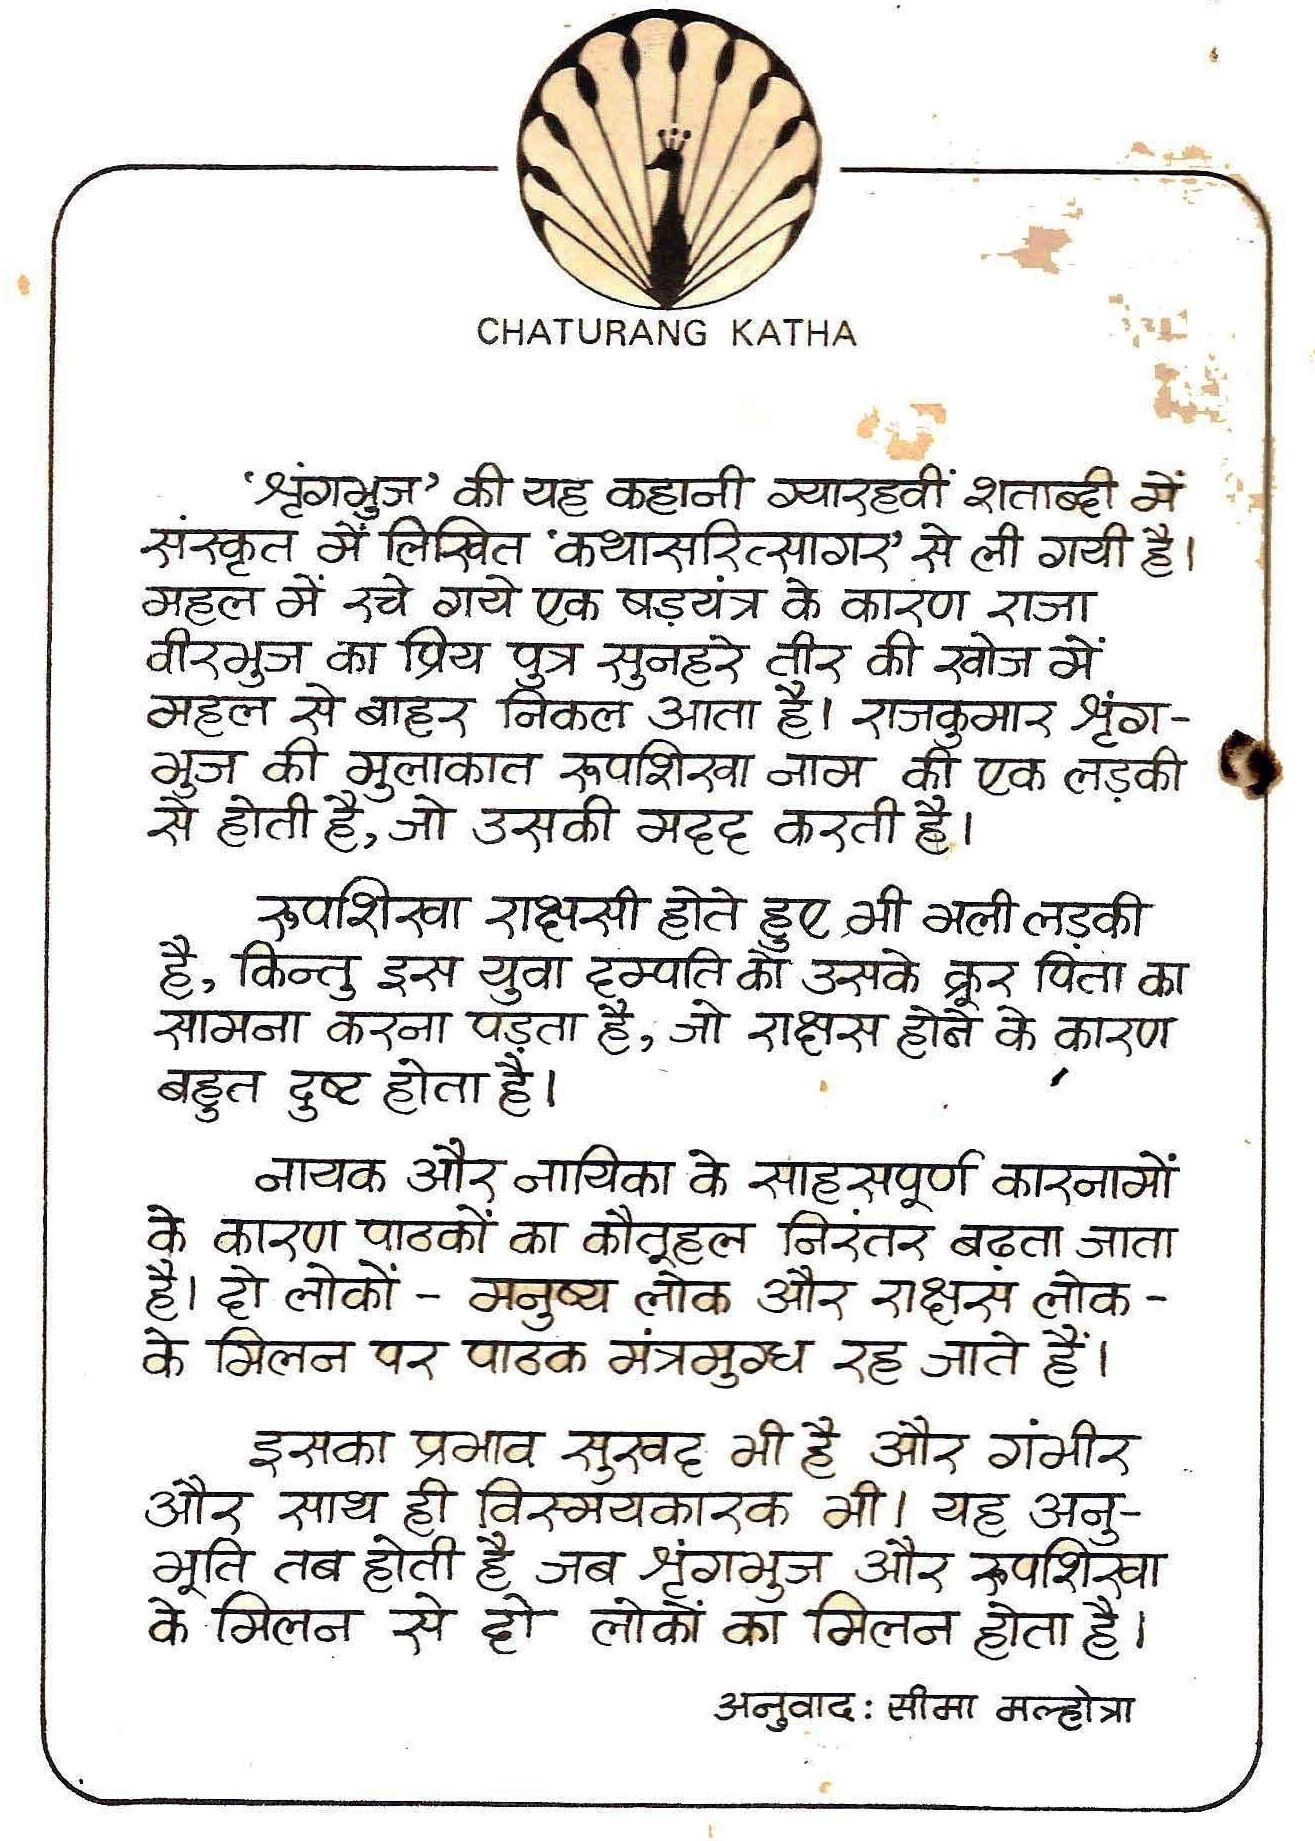 CHATURANG KATHA
'श्रृंगभुज' की यह कहानी ग्यारहवीं शताब्दी में
संस्कृत में लिखित 'कथासरित्सागर' से ली गयी है।
महल में रचे गये एक षड़यंत्र के कारण राजा
वीरभुज का प्रिय पुत्र सुनहरे तीर की खोज में
महल से बाहर निकल आता है। राजकुमार श्रृंग-
भुज की मुलाकात रूपशिखा नाम की एक लड़की
से होती है, जो उसकी मदद करती है।
रूपशिखा राक्षसी होते हुए भी भली लड़की
है, किन्तु इस युवा दम्पति को उसके क्रूर पिता का
सामना करना पड़ता है, जो राक्षस होने के कारण
बहुत दुष्ट होता है।
नायक और नायिका के साहसपूर्ण कारनामों
के कारण पाठकों का कौतूहल निरंतर बढ़ता जाता
है। दो लोकों - मनुष्य लोक और राक्षस लोक -
के मिलन पर पाठक मंत्रमुग्ध रह जाते हैं।
इसका प्रभाव सुखद भी है और गंभीर
और साथ ही विस्मयकारक भी। यह अनु-
भूति तब होती है जब श्रृंगभुज और रूपशिखा
के मिलन से दो लोकों का मिलन होता है।
अनुवाद: सीमा मल्होत्रा